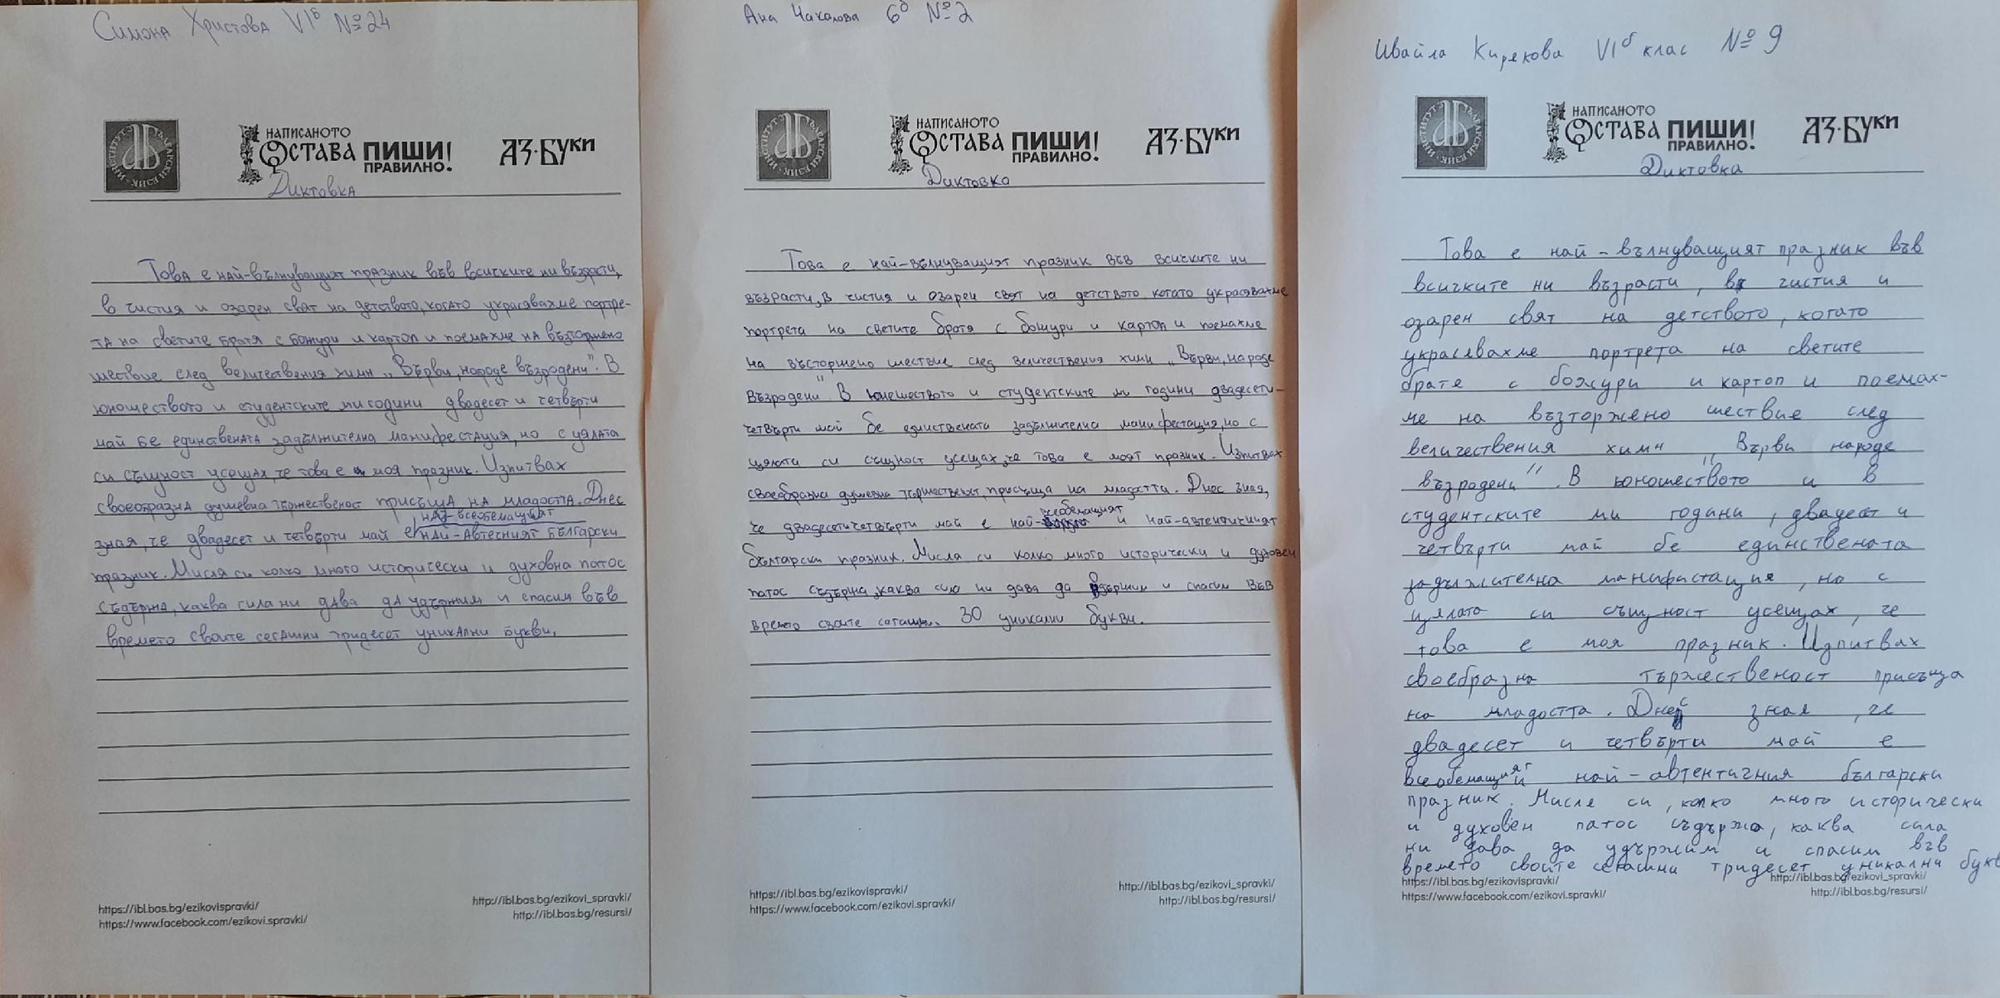 Симона Христова VIб №24
НАПИСАНОТО
ОСТАВА ПИШИ!
ПРАВИЛНО!
АЗ·БУКИ
Диктовка
Това е най-вълнуващият празник във всичките ни възрасти,
в чистия и озарен свят на детството, когато украсявахме портре-
та на светите братя с божури и картоп и поемахме на възторжено
шествие след величествения химн „Върви, народе възродени". В
юношеството и студентските ми години двадесет и четвърти
май бе единствената задължителна манифестация, но с цялата
си същност усещах, че това е моя празник. Изпитвах
своеобразна душевна тържественост присъща на младостта. Днес
най-всеобемащият
зная, че двадесет и четвърти май е най-автечният български
празник. Мисля си колко много исторически и духовна патос
съдържа, каква сила ни дава да удържим и спасим във
времето своите сегашни тридесет уникални букви.
https://ibl.bas.bg/ezikovispravki/
https://www.facebook.com/ezikovi.spravki/
http://ibl.bas.bg/ezikovi_spravki/
http://ibl.bas.bg/resursi/
Ана Чакалова 6б №2
НАПИСАНОТО
ОСТАВА ПИШИ!
ПРАВИЛНО!
АЗ·БУКИ
Диктовка
Това е най-вълнуващият празник във всичките ни
възрасти, в чистия и озарен свят на детството когато украсявахме
портрета на светите братя с божури и картоп и поемахме
на въсторжено шествие след величествения химн „Върви, народе
възродени" В юношеството и студентските ми години двадесети-
четвърти май бе единствената задължителна манифестация, но с
цялата си същност усещах, че това е моят празник. Изпитвах
своеобразна душевна тържественост присъща на младостта. Днес зная,
всеобемащият
че двадесетичетвърти май е най- и най-автентичният
български празник. Мисля си колко много исторически и духовен
патос съдържа, каква сила ни дава да удържим и спасим във
времето своите 30 уникални букви.
https://ibl.bas.bg/ezikovispravki/
https://www.facebook.com/ezikovi.spravki/
http://ibl.bas.bg/ezikovi_spravki/
http://ibl.bas.bg/resursi/
Ивайла Кирекова VIб клас №9
НАПИСАНОТО
ОСТАВА ПИШИ!
ПРАВИЛНО!
АЗ·БУКИ
Диктовка
Това е най-вълнуващият празник във
всичките ни възрасти, в чистия и
озарен свят на детството, когато
украсявахме портрета на светите
братя с божури и картоп и поемах-
ме на възторжено шествие след
величествения химн „Върви народе
възродени". В юношеството и в
студентските ми години, двадесет и
четвърти май бе единствената
задължителна манифистация, но с
цялата си същност усещах, че
това е моя празник. Изпитвах
своебразна тържественост присъща
на младостта. Днес зная, че
двадесет и четвърти май е
всеобемащият и най-автентичния български
празник. Мисля си, колко много исторически
и духовен патос съдържа, каква сила
ни дава да удържим и спасим във
времето своите сегашни тридесет уникални букв
https://ibl.bas.bg/ezikovispravki/
https://www.facebook.com/ezikovi.spravki/
http://ibl.bas.bg/ezikovi_spravki/
http://ibl.bas.bg/resursi/